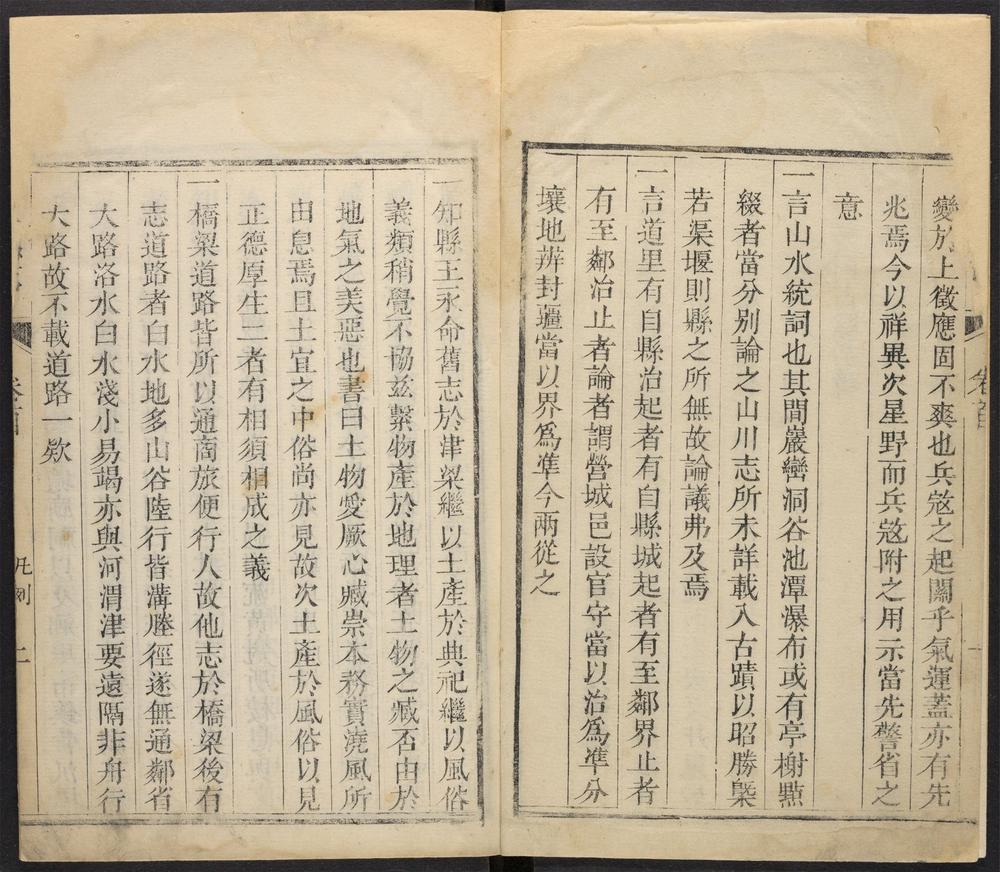 變於上徵應固不爽也兵寇之起關乎氣運蓋亦有先
兆焉今以祥異次星野而兵寇附之用示當先警省之
意
一言山水統詞也其間巖巒洞谷池潭瀑布或有亭榭㸃
綴者當分别論之山川志所未詳載入古蹟以昭勝槩
若渠堰則縣之所無故論議弗及焉
一言道里有自縣治起者有自縣城起者有至鄰界止者
有至鄰治止者論者謂營城邑設官守當以治爲準分
壤地辨封疆當以界爲準今兩從之
卷首
一知縣王永命舊志於津梁繼以土產於典祀繼以風俗
義類稍覺不協兹繫物產於地理者土物之臧否由於
地氣之美惡也書曰土物愛厥心臧崇本務實澆風所
由息焉且土宜之中俗尚亦見故次土產於風俗以見
正德厚生二者有相須相成之義
一橋梁道路皆所以通商旅便行人故他志於橋梁後有
志道路者白水地多山谷陸行皆溝塍徑遂無通鄰省
大路洛水白水淺小易竭亦與河渭津要遠隔非舟行
大路故不載道路一欵
卷首
凡例
二